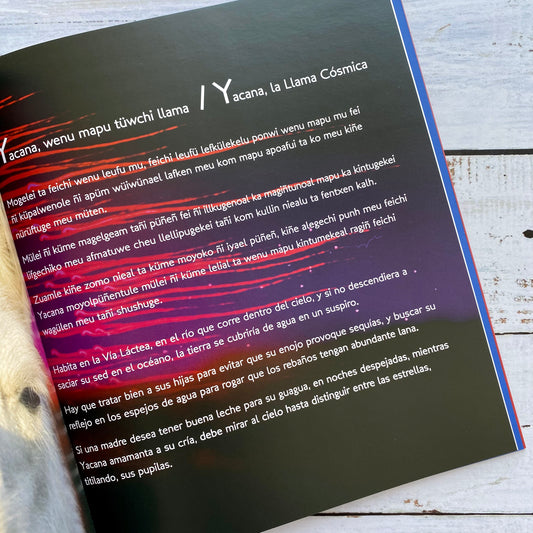 Yacana, wenu mapu tüwchi llama / Yacana, la Llama Cósmica
Mogelei ta feichi wenu leufu mu, feichi leufü lefkülekelu ponwi wenu mapu mu fei
ñi küpalwenole ñi apüm wüiwünael lafken meu kom mapu apoafui ta ko meu kiñe
nürüftuge meu müten.
Mülei ñi küme magelgeam tañi püñeñ fei ñi illkugenoal ka magiñtunoal mapu ka kintugekei
lifgechiko meu afmatuwe cheu llellipugekei tañi kom kullin niealu ta fentxen kalh.
Zuamle kiñe zomo nieal ta küme moyoko ñi iyael püñeñ, kiñe alegechi punh meu feichi
Yacana moyolpüñentule mülei ñi küme lelial ta wenu mapu kintumekeal ragiñ feichi
wagülen meu tañi shushuge.
Habita en la Vía Láctea, en el río que corre dentro del cielo, y si no descendiera a
saciar su sed en el océano, la tierra se cubriría de agua en un suspiro.
Hay que tratar bien a sus hijas para evitar que su enojo provoque sequías, y buscar su
reflejo en los espejos de agua para rogar que los rebaños tengan abundante lana.
Si una madre desea tener buena leche para su guagua, en noches despejadas, mientras
Yacana amamanta a su cría, debe mirar al cielo hasta distinguir entre las estrellas,
titilando, sus pupilas.